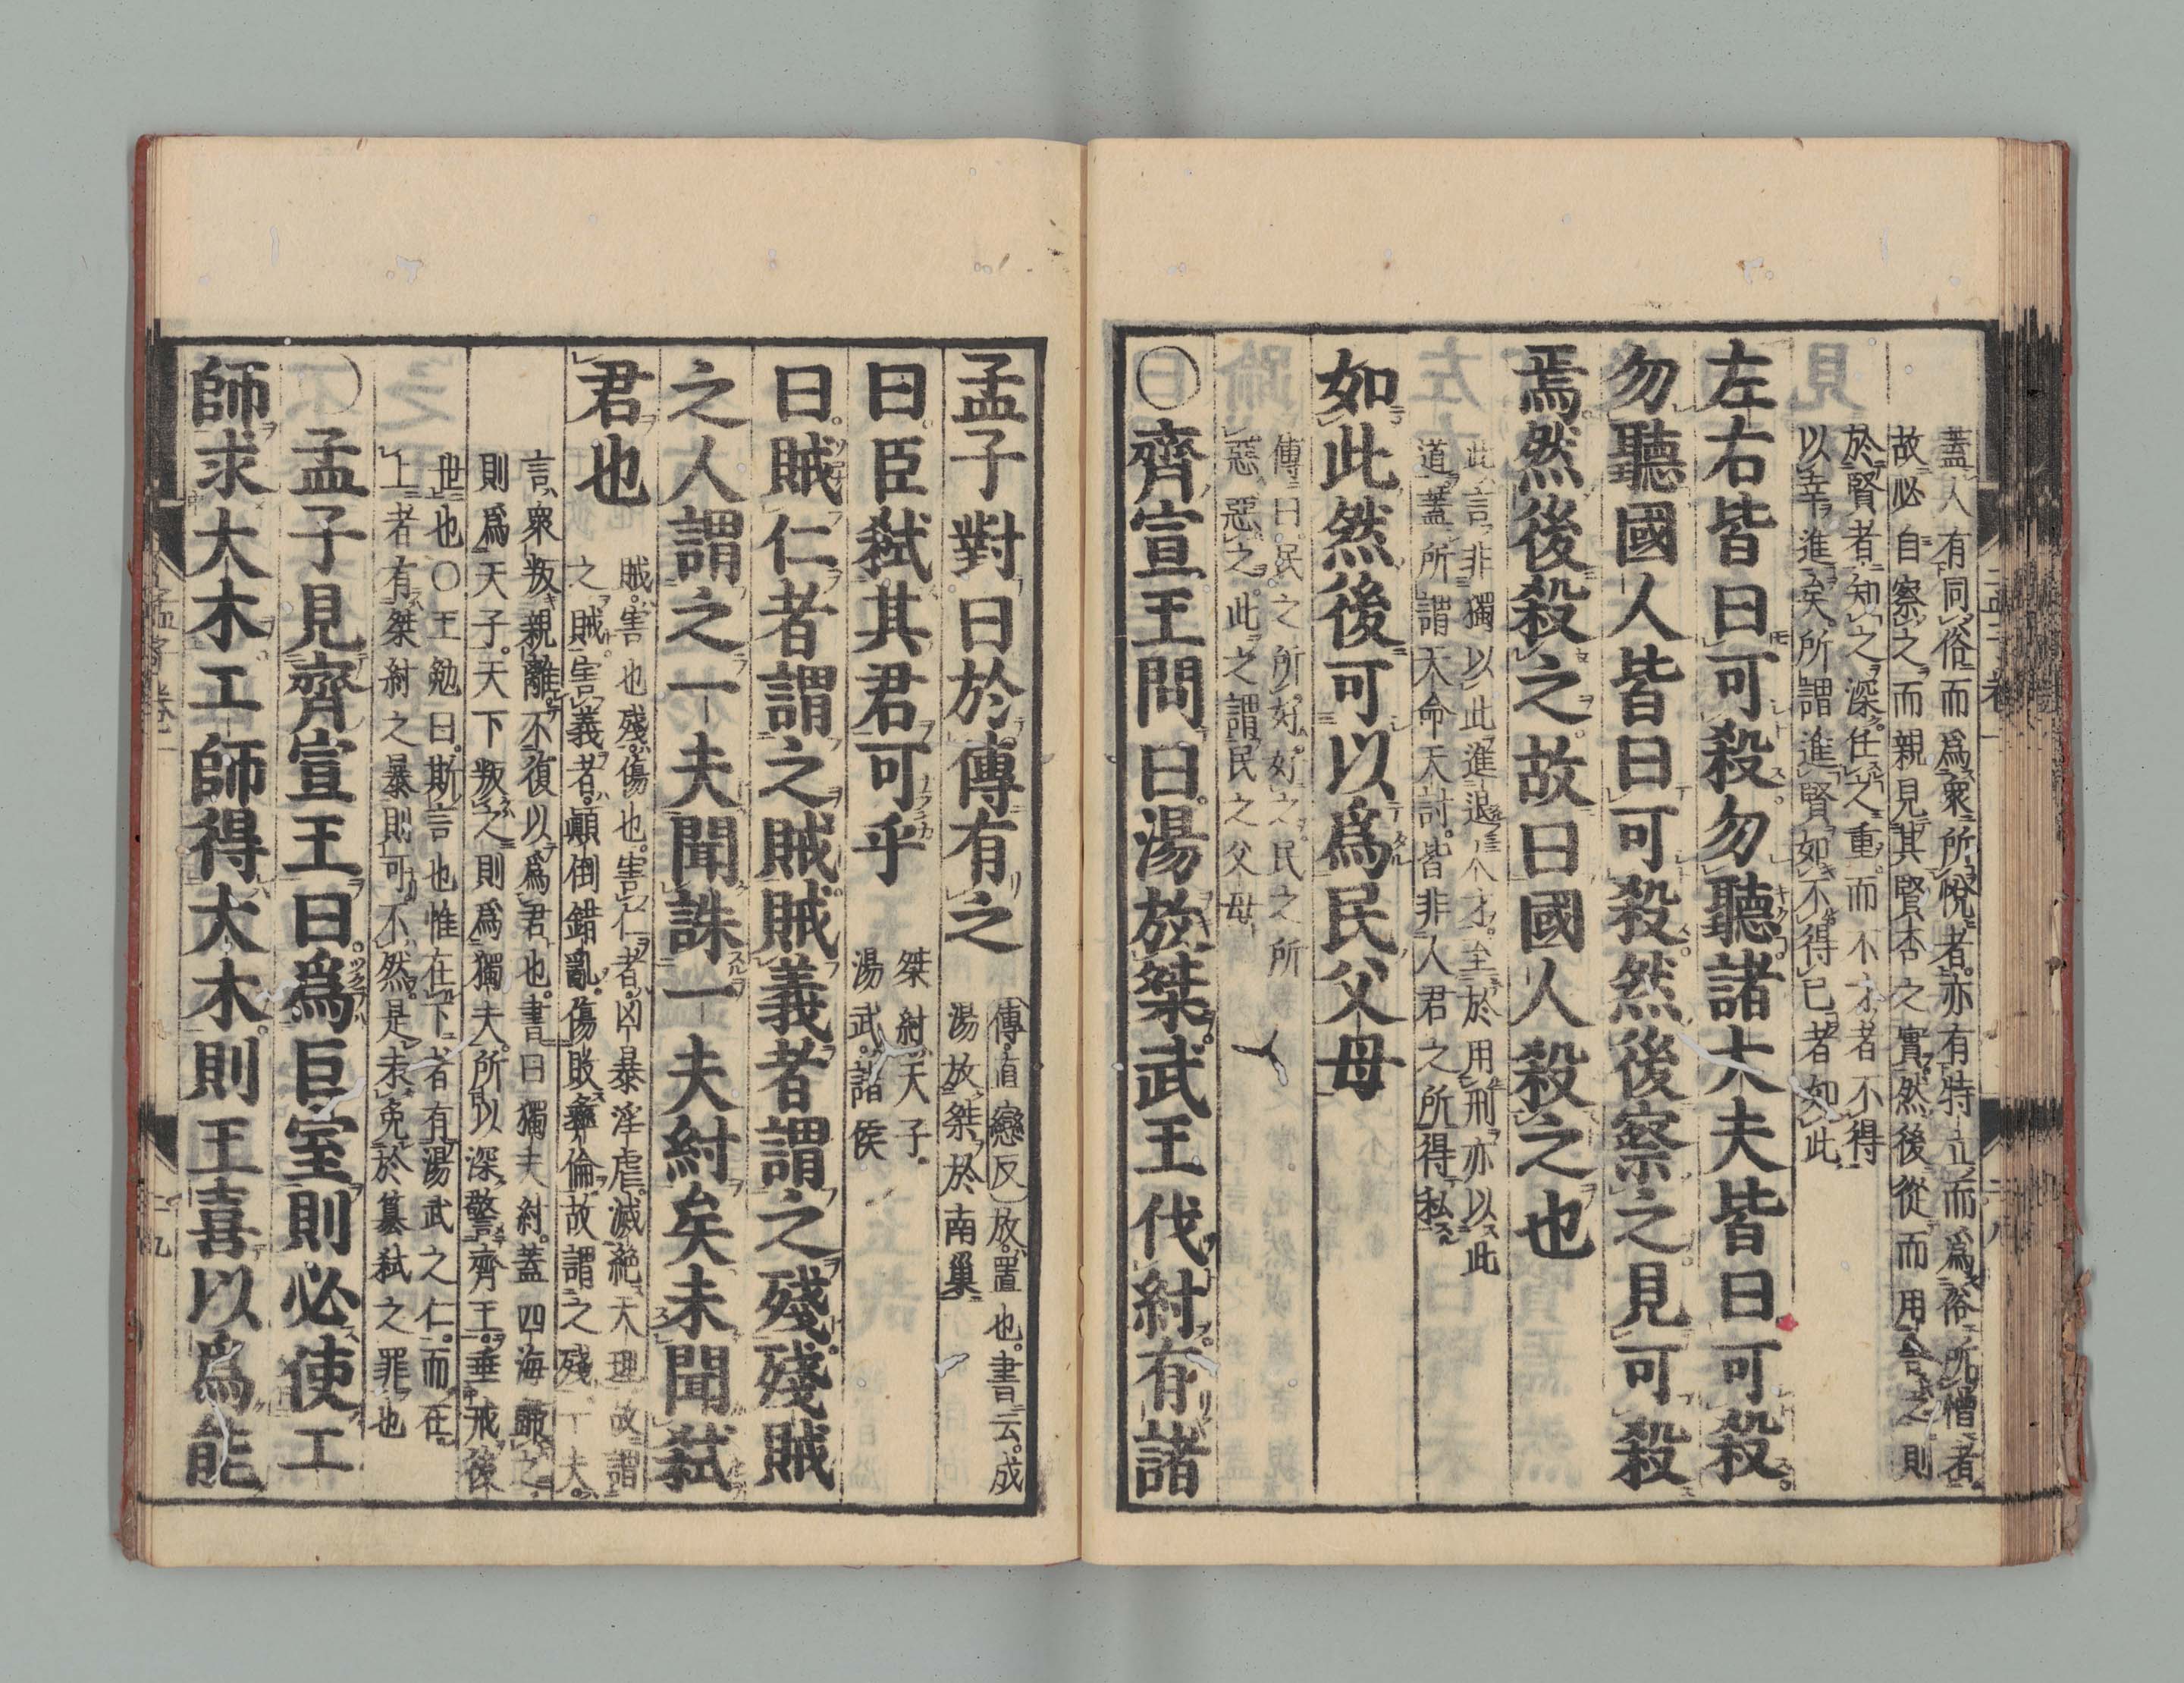 蓋人有同俗而爲衆所悅者亦有特立而爲俗所憎者
故必自察之而親見其賢否之實然後從而用舍之則
於賢者知之深任之重而不才者不得
以幸進矣所謂進賢如不得已者如此
左右皆曰可殺勿聽諸大夫皆曰可殺
勿聽國人皆曰可殺然後察之見可殺
焉然後殺之故曰國人殺之也
此言非獨以此進退人才至於用刑亦以此
道蓋所謂天命天討皆非人君之所得私
如此然後可以爲民父母
傳曰民之所好好之民之所
惡惡之此之謂民之父母
○齊宣王問曰湯放桀武王伐紂有諸
孟子對曰於傳有之
傳直戀反放置也書云成
湯放桀於南巢
曰臣弑其君可乎
桀紂天子
湯武諸侯
曰賊仁者謂之賊賊義者謂之殘殘賊
之人謂之一夫聞誅一夫紂矣未聞弑
君也
賊害也殘傷也害仁者凶暴淫虐滅絕天理故謂
之賊害義者顚倒錯亂傷敗彝倫故謂之殘一夫
言衆叛親離不復以爲君也書曰獨夫紂蓋四海歸之
則爲天子天下叛之則爲獨夫所以深警齊王垂戒後
世也○王勉曰斯言也惟在下者有湯武之仁而在
上者有桀紂之暴則可不然是未免於簒弑之罪也
○孟子見齊宣王曰爲巨室則必使工
師求大木工師得大木則王喜以爲能